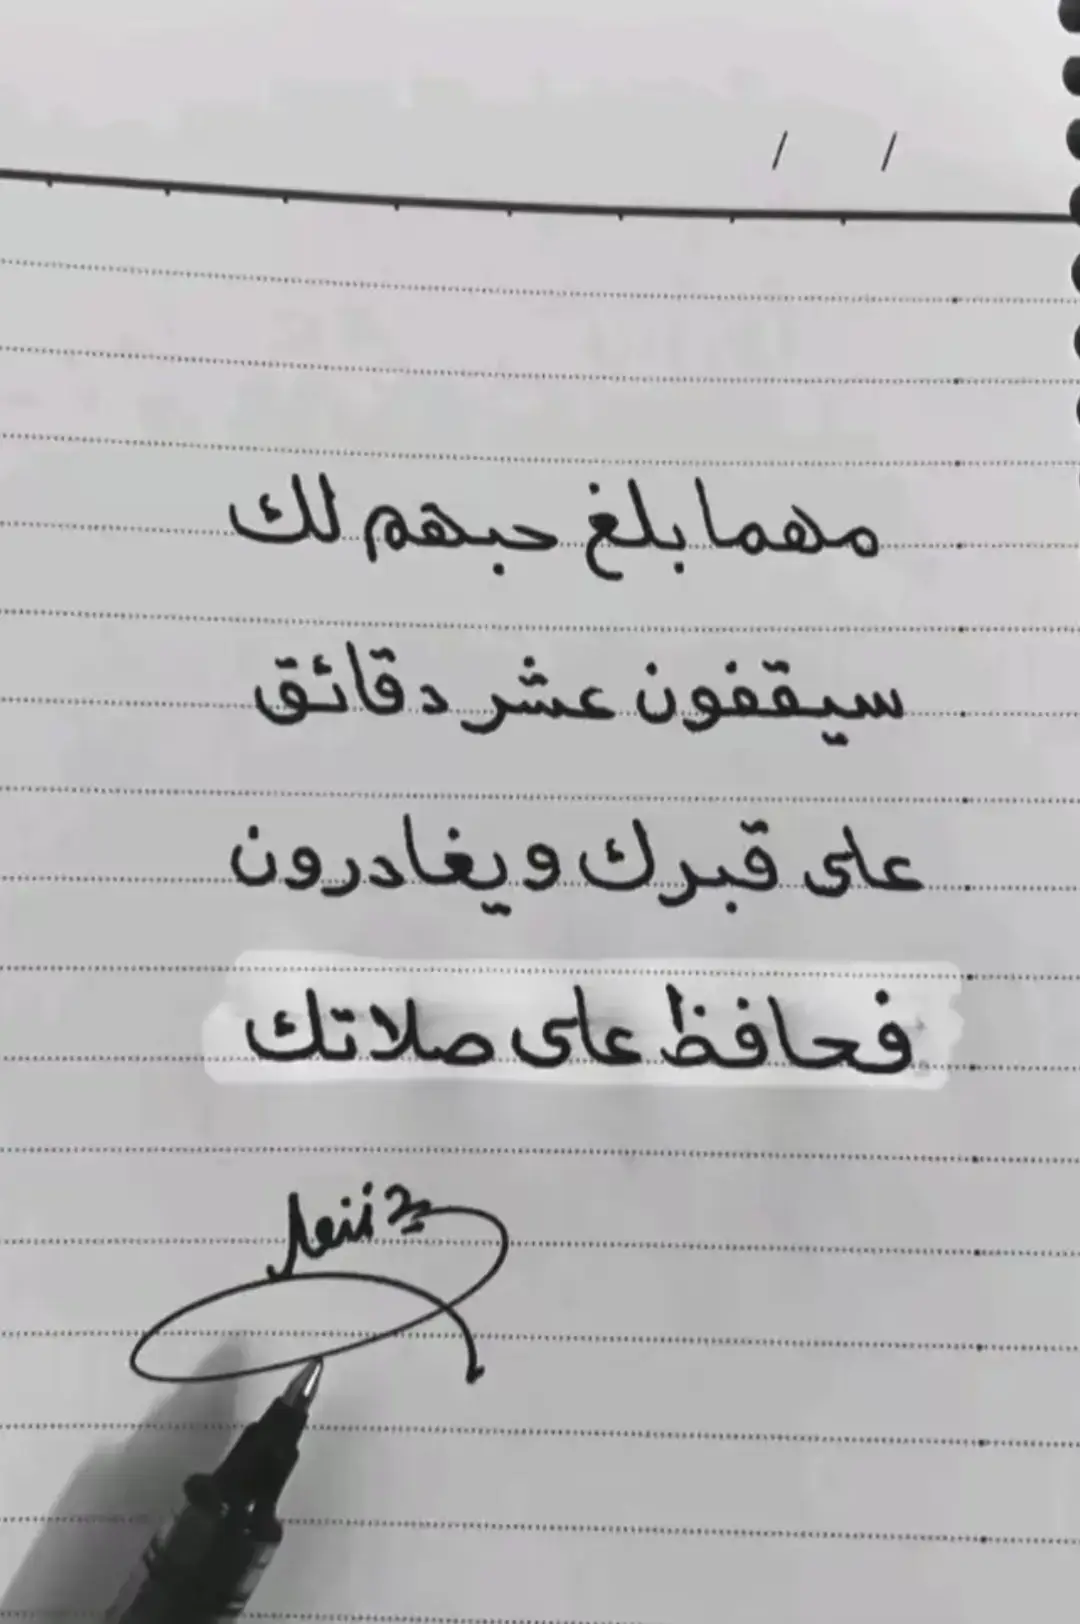 / /
مهما بلغ حبهم لك
سيقفون عشر دقائق
على قبرك ويغادرون
فحافظ على صلاتك